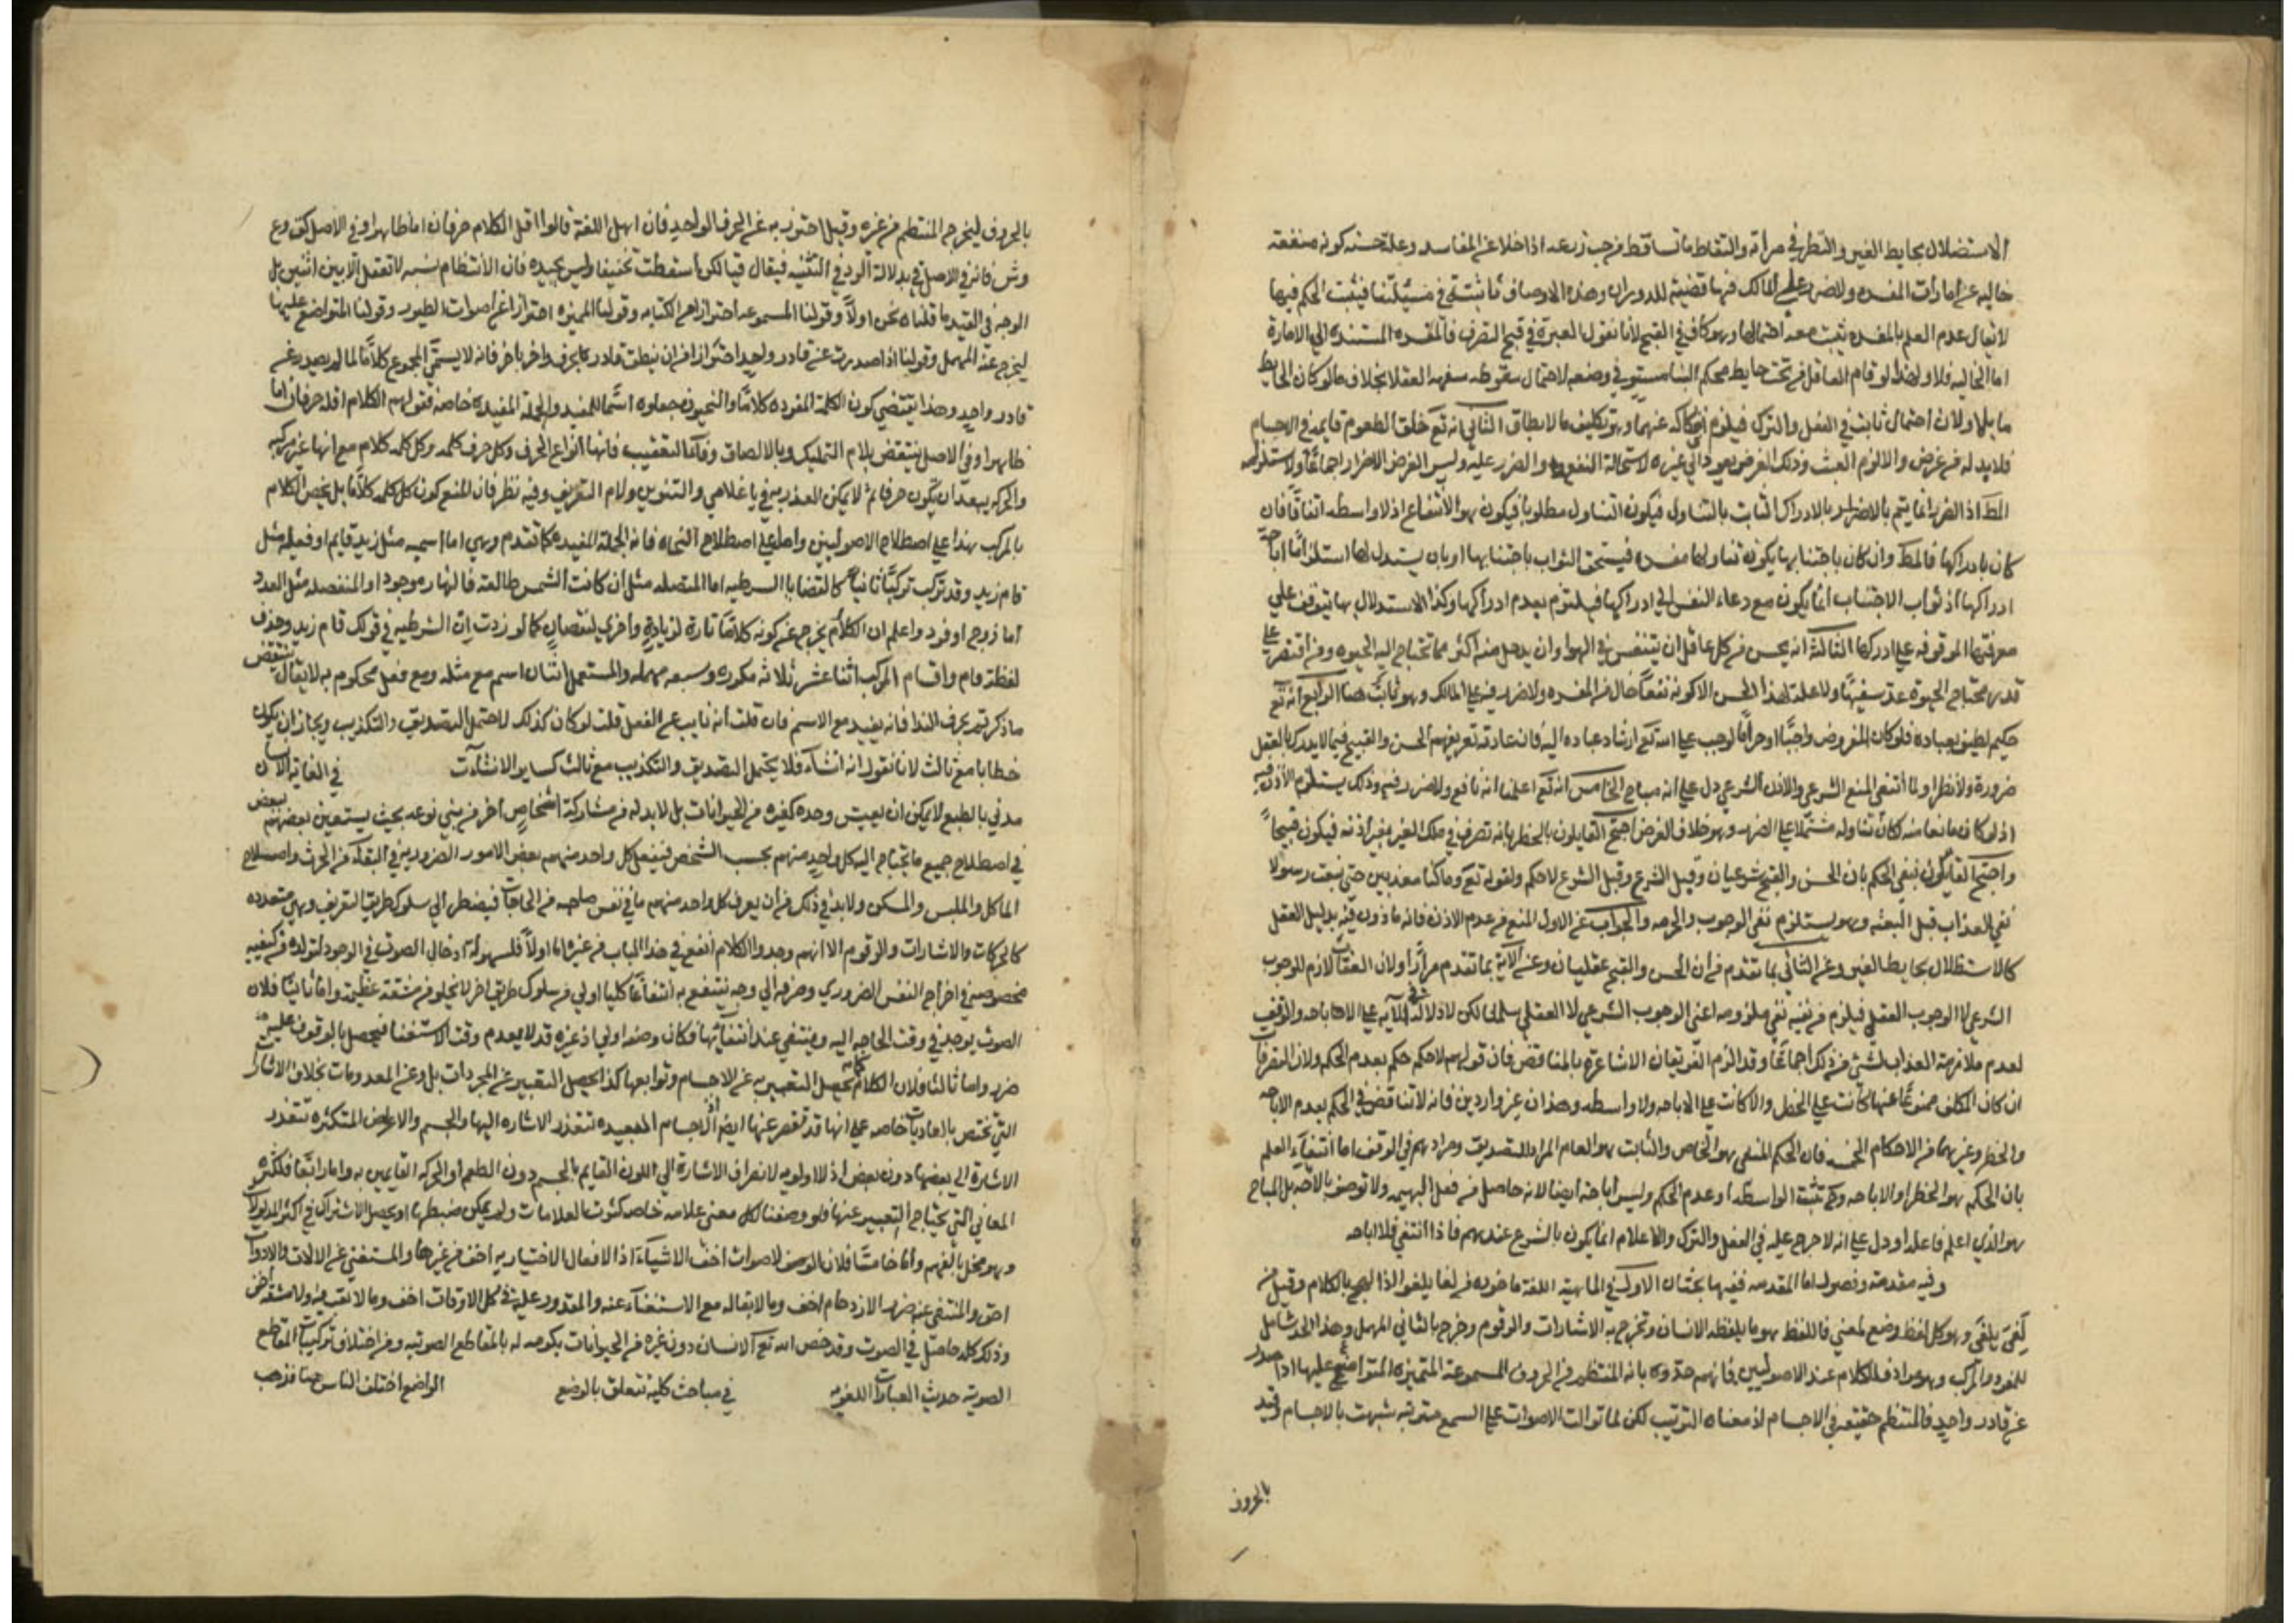 الاستضلال بحايط الغير والنظر في مرآته والتقاط ما تساقط من حب زرعه اذا خلا عن المفاسد وعلة حسنه كونه منفعة
خالية عن امارات المفسده ولا ضرر على المالك فيها قضية للدوران وهذه الاوصاف ثابتة في مسئلتنا فيثبت الحكم فيها
لا يقال عدم العلم بالمفسده يثبت معه احتمالها وهو كاف في القبح لانا نقول العبرة في قبح التصرف فالمفسده المستنده الى الامارة
اما الخاليه فلا ولهذا لو قام العاقل من تحت حايط محكم البنا مستو في وضعه لاحتمال سقوطه سفهه العقلا بخلاف ما لو كان الحايط
مايلا ولان احتمال ثابت في الفعل والترك فيلزم انفكاكه عنهما وهو تكليف ما لا يطاق الثاني انه تع خلق الطعوم قايمة في الاجسام
فلا بد له من غرض والا لزم العبث وذلك الغرض يعود الى غيره لاستحالة النفع والضرر عليه وليس الغرض الاضرار اجماعا ولاستلزامه
المط اذ الضرر انما يتم بالاضرار بالادراك الثابت بالتناول فيكون التناول مطلوبا فيكون هو الانتفاع اذ لا واسطه اتفاقا فان
كان بادراكها فالمط وان كان باجتنابها بكون تناولها مفسده فيستحق الثواب باجتنابها او بان يستدل بها استلزاما اباحة
ادراكها اذ ثواب الاجتناب انما يكون مع دعاء النفس الى ادراكها فيلتزم بعدم ادراكها وكذا الاستدلال بها يتوقف على
معرفتها الموقوفه على ادراكها الثالث انه يحسن من كل عاقل ان يتنفس في الهوا وان يدخل منه اكثر مما تحتاج اليه الحيوه ومن اقتصر على
قدر محتاج الحيوة عد سفيها ولا علة لهذا الحسن الا كونه نفعا خال من المفسده ولا ضرر فيه على المالك وهو ثابت هنا الرابع انه تع
حكيم لطيف بعباده فلو كان المفروض واجبا او حراما لوجب على الله تع ارشاد عباده اليه فان عادته تعريفهم الحسن والقبيح فيما لا يدرك بالعقل
ضرورة ولا نظرا ولما انتفى المنع الشرعي والاذن الشرعي دل على انه مباح الخامس انه تع اعلمنا انه نافع ولا ضرر فيه وذلك يستلزم الاذن فيه
اذ لو كان مانعا منه لكان تناوله مشتملا على الضرر وهو خلاف الفرض احتج القايلون بالحظر بانه تصرف في ملك الغير بغير اذنه فيكون قبيحا
واحتج القايلون بنفي الحكم بان الحسن والقبح شرعيان وقبل الشرع وقبل الشرع لا حكم ولقوله تع وما كنا معذبين حتى نبعث رسولا
نفي العذاب قبل البعثه وهو يستلزم نفي الوجوب والحرمه والجواب عن الاول المنع من عدم الاذن فانه ماذون فيه بدليل العقل
كالاستظلال بحايط الغير وعن الثاني بما تقدم من ان الحسن والقبح عقليان وعن الآية بما تقدم مرارا ولان العقاب لازم للوجوب
الشرعي لا الوجوب العقلي فيلزم من نفيه نفي ملزومه اعني الوجوب الشرعي لا العقلي سلمنا لكن لا دلالة في الآيه على الاباحه والوقف
لعدم ملازمة العذاب لشئ من ذلك اجماعا وقد الزم الفريقان الاشاعرة بالمناقض فان قولهم لا حكم حكم بعدم الحكم ولان التصرفات
ان كان المكلف ممنوعا عنها كانت على الحظر والا كانت على الاباحه ولا واسطه وهذان غير واردين فانه لا تناقض في الحكم بعدم الاباحه
والحظر وغيرهما من الاحكام الخمسه فان الحكم المنفي هو الخاص والثابت هو العام المراد للتصديق ومرادهم في الوقف اما انتفاء العلم
بان الحكم هو الحظر او الاباحه وح تثبت الواسطه او عدم الحكم وليس اباحة ايضا لانه حاصل من فعل البهيمه ولا توصف بالاباحه بل المباح
هو الذي اعلم فاعله او دل على انه لا حرج عليه في الفعل والترك والاعلام انما يكون بالشرع عندهم فاذا انتفى فلا اباحه
وفيه مقدمة وفصول اما المقدمه ففيها بحثان الاول في الماهية اللغة ماخوده من لغا يلغو اذا لهج بالكلام وقيل من
لغى يلغى وهو كل لفظ وضع لمعنى فاللفظ هو ما يلفظه الانسان وتخرج به الاشارات والرقوم وخرج بالثاني المهمل وهذا الحد شامل
للمفرد والمركب وهو مرادف للكلام عند الاصوليين فانهم حدوه بانه المنتظم من الحروف المسموعة المتميزه المتواضع عليها اذا صدر
عن قادر واحد فالمنتظم حقيقة في الاجسام اذ معناه الترتيب لكن لما توالت الاصوات على السمع مترتبه شبهت بالاجسام وقيد
بالحروف
بالحروف ليخرج المنتظم من غيره وقيل احترز به عن الحرف الواحد فان اهل اللغة قالوا اقل الكلام حرفان اما ظاهرا وفي الاصل كق وع
وش فانه في الاصل قي بدلالة الرد في التثنية فيقال قيا لكن اسقطت تخفيفا وليس بجيده فان الانتظام نسبه لا تعقل الا بين اثنين بل
الوجه في القيد ما قلناه نحن اولا وقولنا المسموعه احترازا عن الكتابه وقولنا المميزه احترازا عن اصوات الطيور وقولنا المتواضع عليها
ليخرج عنه المهمل وقولنا اذا صدرت عن قادر واحد احترازا من ان ينطق قادر بحرف واخر باخر فانه لا يسمى المجموع كلاما لما لم يصدر عن
قادر واحد وهذا يقتضي كون الكلمة المفرده كلاما والنحويون جعلوه اسما للمفيد والجملة المفيده خاصة فقولهم الكلام اقله حرفان اما
ظاهرا وفي الاصل ينتقض بلام التمليك وبا الالصاق وفا التعقيب فانها انواع الحرف وكل حرف كلمه وكل كلمه كلام مع انها غير مركبه
والحركه يبعد ان تكون حرفا ثم لا يمكن العذر به في يا غلامي والتنوين ولام التعريف وفيه نظر فان المنع كون كل كلمه كلاما بل يخص الكلام
بالمركب هذا على اصطلاح الاصوليين واما على اصطلاح النحاه فانه الجملة المفيده كما تقدم وهي اما اسميه مثل زيد قايم او فعليه مثل
قام زيد وقد تركب تركيبا ثانيا كالقضايا الشرطيه اما المتصله مثل ان كانت الشمس طالعة فالنهار موجود او المنفصله مثل العدد
اما زوج او فرد واعلم ان الكلام يخرج عن كونه كلاما تارة لزيادة واخرى لنقصان كما لو زدت ان الشرطيه في قولك قام زيد وحذف
لفظة قام واقسام المركب اثنا عشر ثلاثه مكرره وسبعه مهمله والمستعمل اثنان اسم مع مثله ومع فعل محكوم به لا يقال ينتقض
ما ذكرتم بحرف الندا فانه يفيد مع الاسم فان قلت انه نايب عن الفعل قلت لو كان كذلك لاحتمل التصديق والتكذيب ويجاز ان يكون
خطابا مع ثالث لانا نقول انه انشاء فلا يحتمل التصديق والتكذيب مع ثالث كساير الانشآت في الغايه الانسان
مدني بالطبع لا يمكن ان يعيش وحده كغيره من الحيوانات بل لا بد له من مشاركة اشخاص اخر من بني نوعه بحيث يستعين بعضهم ببعض
في اصطلاح جميع ما يحتاج اليه كل واحد منهم بحسب الشخص فيفعل كل واحد منهم بعض الامور الضروريه في البقاء من الحرث واصلاح
الماكل والملبس والمسكن ولا بد في ذلك من ان يعرف كل واحد منهم ما في نفس صاحبه من الحاجات فيضطر الى سلوك طريق التعريف وهي متعدده
كالحركات والاشارات والرقوم الا انهم وجدوا الكلام انفع في هذا الباب من غيره اما اولا فلسهولة ادخال الصوت في الوجود لتولده من كيفيه
مخصوصه في اخراج النفس الضروري وصرفه الى وجه ينتفع به انتفاعا كليا اولى من سلوك طريق اخر لا يخلو من مشقة عظيمه واما ثانيا فلان
الصوت يوجد في وقت الحاجه اليه وينتفي عند انتفائها فكان وضعه اولى اذ غيره قد لا يعدم وقت الاستغنا فيحصل بالوقوف عليه
ضرر واما ثالثا فلان الكلام كما يحصل التعبير به عن الاجسام وتوابعها كذا يحصل التعبير عن المجردات بل وعن المعدومات بخلاف الاشارات
التي تختص بالماديات خاصه على انها قد تقصر عنها ايضا اذ الاجسام البعيده تتعذر الاشاره اليها والجسم والاعراض المتكثره تتعذر
الاشارة الى بعضها دون بعض اذ لا اولويه لانصراف الاشارة الى اللون القايم بالجسم دون الطعم او الحركه القايمين به واما رابعا فلكثرة
المعاني التي يحتاج التعبير عنها فلو وضعنا لكل معنى علامه خاصه كثرت العلامات ولم يمكن ضبطها او يحصل الاشتراك في اكثر المدلولات
وهو مخل بالفهم واما خامسا فلان الاصوات اخف الاشياء اذ الافعال الاختياريه اخف من غيرها والمستغني عن الالات والادوات
اخف والمنتفي عنه ضرر الازدحام اخف وما لا بقا له مع الاستغناء عنه والمقدور عليه في كل الاوقات اخف وما لا تعب فيه ولا مشقة اخف
وذلك كله حاصل في الصوت وقد خص الله تع الانسان دون غيره من الحيوانات بكرمه له بالمقاطع الصوتيه ومن اختلاف تركيبات المقاطع
الصوتيه حدثت العبارات اللغويه في مباحث كلية تتعلق بالوضع الواضع اختلف الناس هنا فذهب